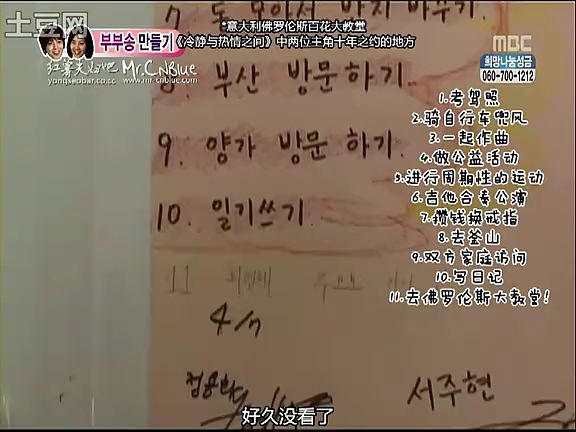 土豆网
*意大利佛罗伦斯百花大教堂
《冷静与热情之间》中两位主角十年之约的地方
부부송 만들기
Mr.CNBlue
yongseobar.co.cc www.mr-cnblue.com
MBC
희망나눔성금
060-700-1212
7 돈 모아서 반지 바꾸기.
8. 부산 방문하기.
9. 양가 방문하기.
10. 일기쓰기.
11
4/7
정용화
서주현
1.考驾照
2.骑自行车兜风
3.一起作曲
4.做公益活动
5.进行周期性的运动
6.吉他合奏公演
7.攒钱换戒指
8.去釜山
9.双方家庭访问
10.写日记
11.去佛罗伦斯大教堂!
好久没看了